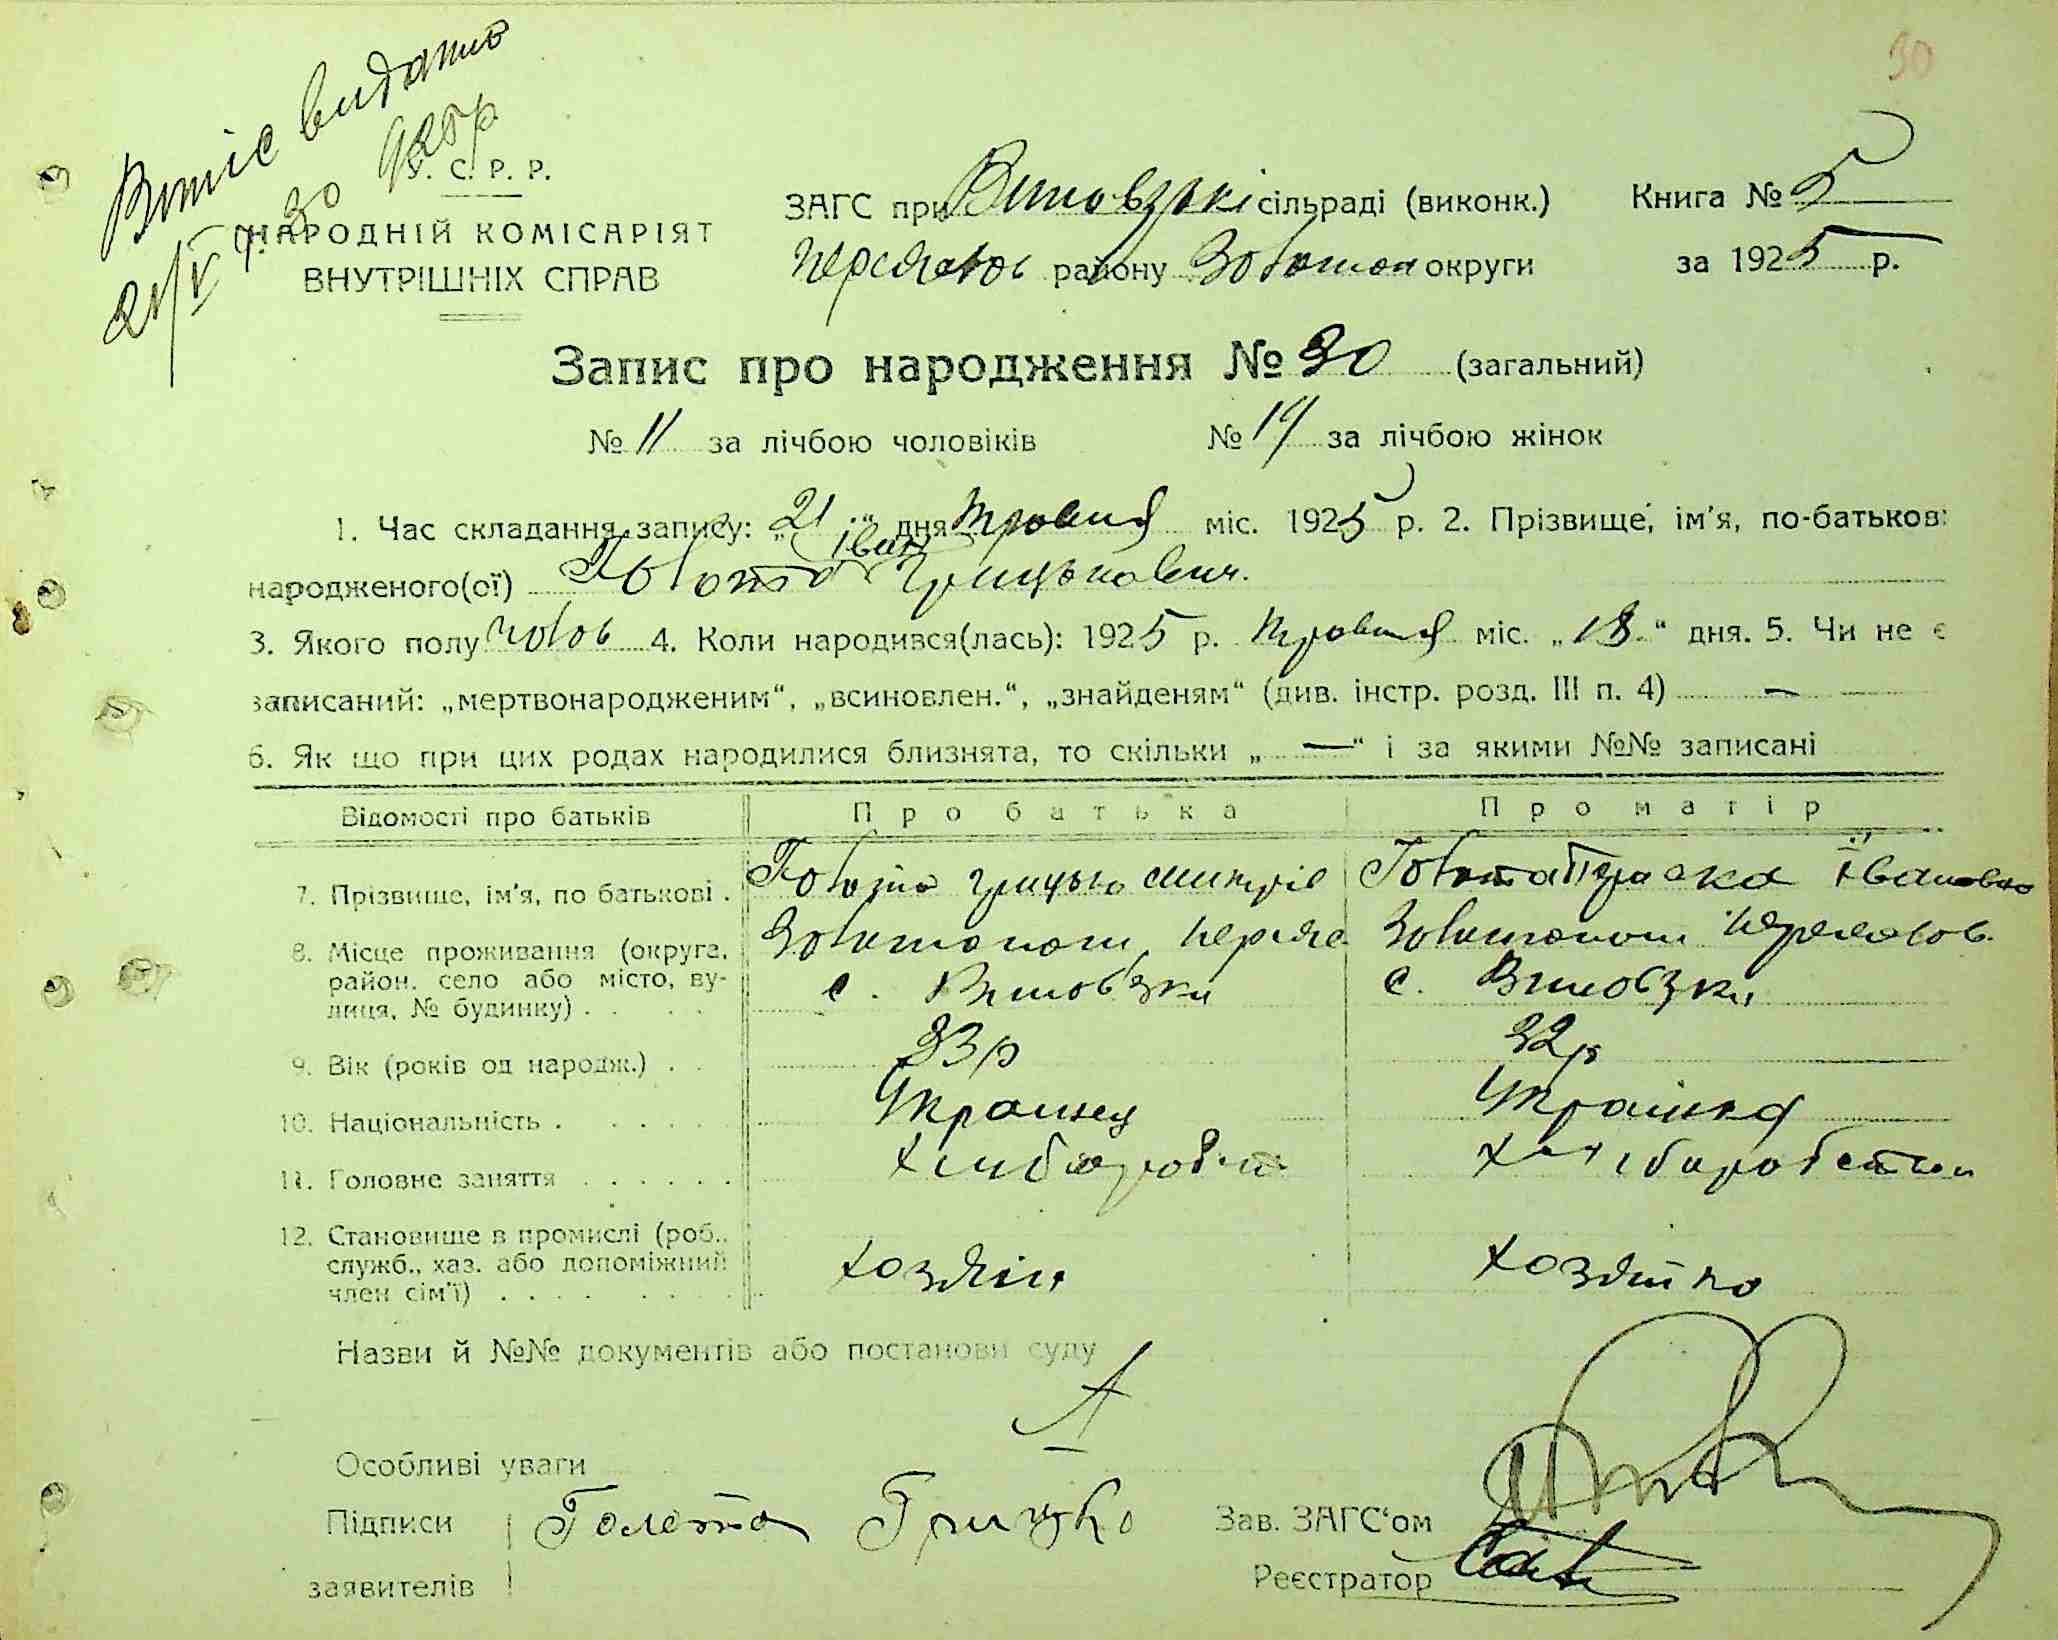 30
Витіс видано
21/V 30 925р
У. С. Р. Р.
НАРОДНІЙ КОМІСАРІЯТ
ВНУТРІШНІХ СПРАВ
ЗАГС при сільраді (виконк.) Книга № 5
Переяслов району Золотон округи за 1925 р.
Запис про народження № 30 (загальний)
№ 11 за лічбою чоловіків № 19 за лічбою жінок
1. Час складання запису: „21“ дня травня міс. 1925 р. 2. Прізвище, ім'я, по-батькові
Іван
народженого(ої) Голота Грицькович.
3. Якого полу чолов 4. Коли народився(лась): 1925 р. травня міс. „18“ дня. 5. Чи не є
записаний: „мертвонародженим“, „всиновлен.“, „знайденям“ (див. інстр. розд. III п. 4) —
6. Як що при цих родах народилися близнята, то скільки „ — “ і за якими №№ записані
Відомості про батьків Про батька Про матір
7. Прізвище, ім'я, по батькові . Голота Грицько Голота Параска Івановна
8. Місце проживання (округа, район, село або місто, вулиця, № будинку) . Золотонош Перяс Золотонош Переяслов.
с. с.
9. Вік (років од народж.) . 33р 32р
10. Національність . Украинец Украінка
11. Головне заняття хлибороб
12. Становище в промислі (роб., служб., хаз. або допоміжний член сім'ї) хозяін хозяйка
Назви й №№ документів або постанови суду
Особливі уваги
Підписи Голота Грицько Зав. ЗАГС‘ом
заявителів Реєстратор